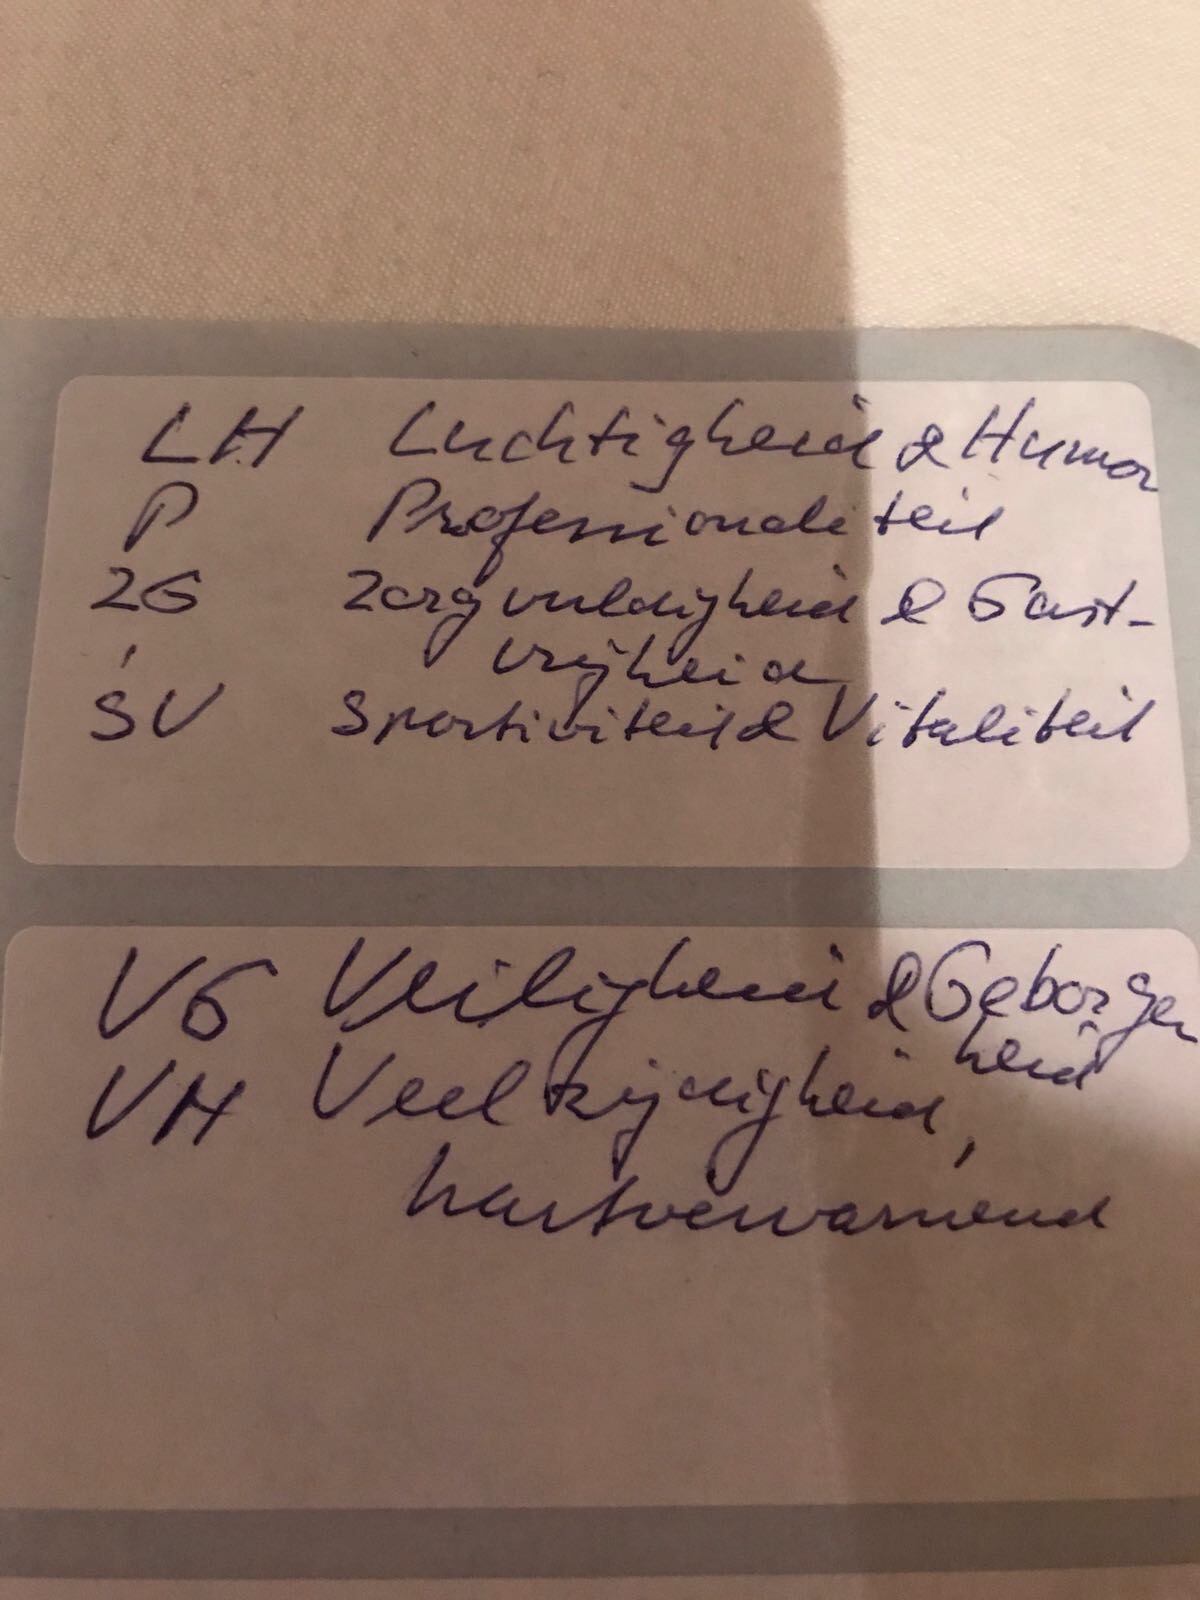 LH Luchtigheid & Humor
P Professionaliteit
ZG Zorgvuldigheid & Gast-
vrijheid
SV Sportiviteit & Vitaliteit
VG Veiligheid & Geborgen
heid
VH Veelzijdigheid,
hartverwarmend